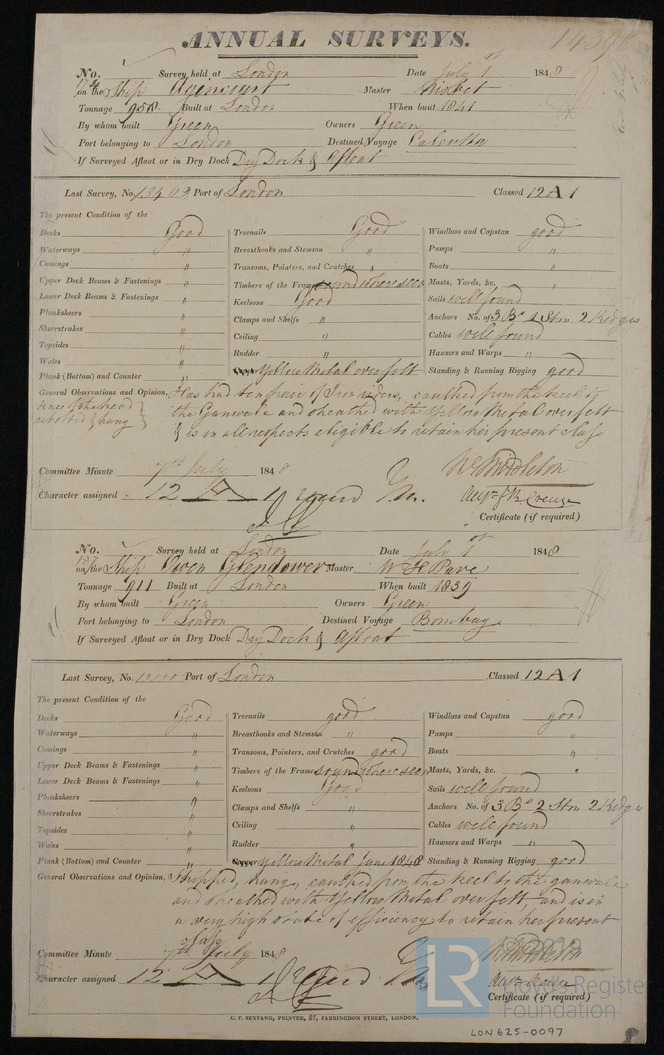 ANNUAL SURVEYS.
No. Survey held at London Date July 1st 1848
on the Ship Agincourt Master Nisbet
Tonnage 958 Built at London When built 1841
By whom built Green Owners Green
Port belonging to London Destined Voyage Calcutta
If Surveyed Afloat or in Dry Dock Dry Dock & Afloat
Last Survey, No. 13463 Port of London Classed 12 A 1
The present Condition of the
Decks Good Treenails Good Windlass and Capstan good
Waterways " Breasthooks and Stemson " Pumps "
Comings " Transoms, Pointers, and Crutches " Boats "
Upper Deck Beams & Fastenings " Timbers of the Frame sound where seen Masts, Yards, &c. "
Lower Deck Beams & Fastenings " Keelsons Good Sails well found
Planksheers " Clamps and Shelfs " Anchors No. of 3 Br 1 Strm 2 Kedges
Sheerstrakes " Ceiling " Cables well found
Topsides " Rudder " Hawsers and Warps "
Wales " Yellow Metal over felt Standing & Running Rigging good
Plank (Bottom) and Counter "
General Observations and Opinion, Has had ten pair of Iron riders, caulked from the keel to
knees of the head the Gunwale and sheathed with Yellow Metal over felt
& hung & is in all respects eligible to retain her present class
Committee Minute 7th July 1848
Character assigned 12 A 1
Certificate (if required)
No. Survey held at London Date July 1st 1848
on the Ship Owen Glendower Master W H Pare
Tonnage 911 Built at London When built 1839
By whom built Green Owners Green
Port belonging to London Destined Voyage Bombay
If Surveyed Afloat or in Dry Dock Dry Dock & Afloat
Last Survey, No. Port of London Classed 12 A 1
The present Condition of the
Decks Good Treenails good Windlass and Capstan good
Waterways " Breasthooks and Stemson " Pumps "
Comings " Transoms, Pointers, and Crutches good Boats "
Upper Deck Beams & Fastenings " Timbers of the Frame sound where seen Masts, Yards, &c. "
Lower Deck Beams & Fastenings " Keelsons Good Sails well found
Planksheers " Clamps and Shelfs " Anchors No. of 3 Br 2 Strm 2 Kedges
Sheerstrakes " Ceiling " Cables well found
Topsides " Rudder " Hawsers and Warps "
Wales " Yellow Metal June 1848 Standing & Running Rigging good
Plank (Bottom) and Counter "
General Observations and Opinion, Stripped, hung, caulked from the keel to the gunwale
and sheathed with Yellow Metal over felt, and is in
a very high state of efficiency to retain her present
class
Committee Minute 7th July 1848
Character assigned 12 A 1
Certificate (if required)
C. F. SEYFANG, PRINTER, 57, FARRINGDON STREET, LONDON.
LR
© 2019
Lloyd's Register
Foundation
LON625-0097